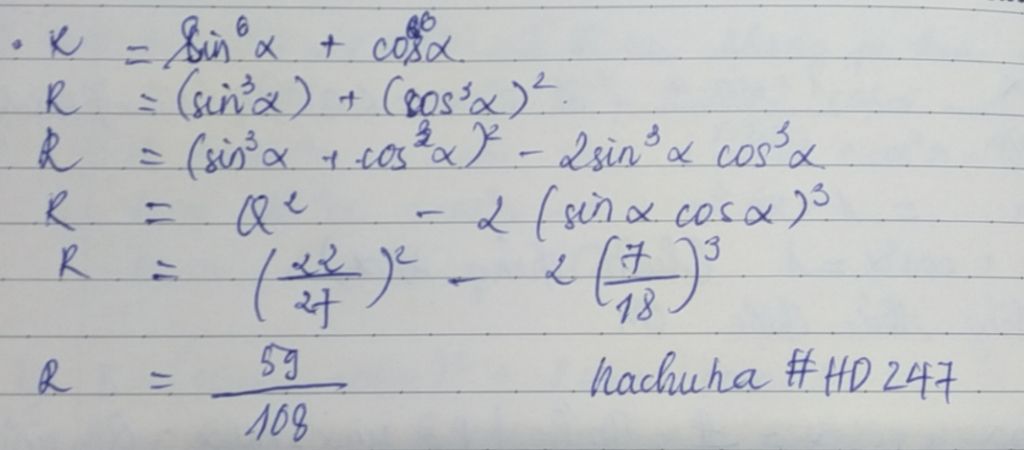 . R = sin⁶α + cos⁶α
R = (sin³α) + (cos³α)².
R = (sin³α + cos³α)² - 2sin³α cos³α
R = Q² - 2 (sinα cosα)³
R = (22/27)² - 2 (7/18)³
R = 59/108 hachuha #HD 247